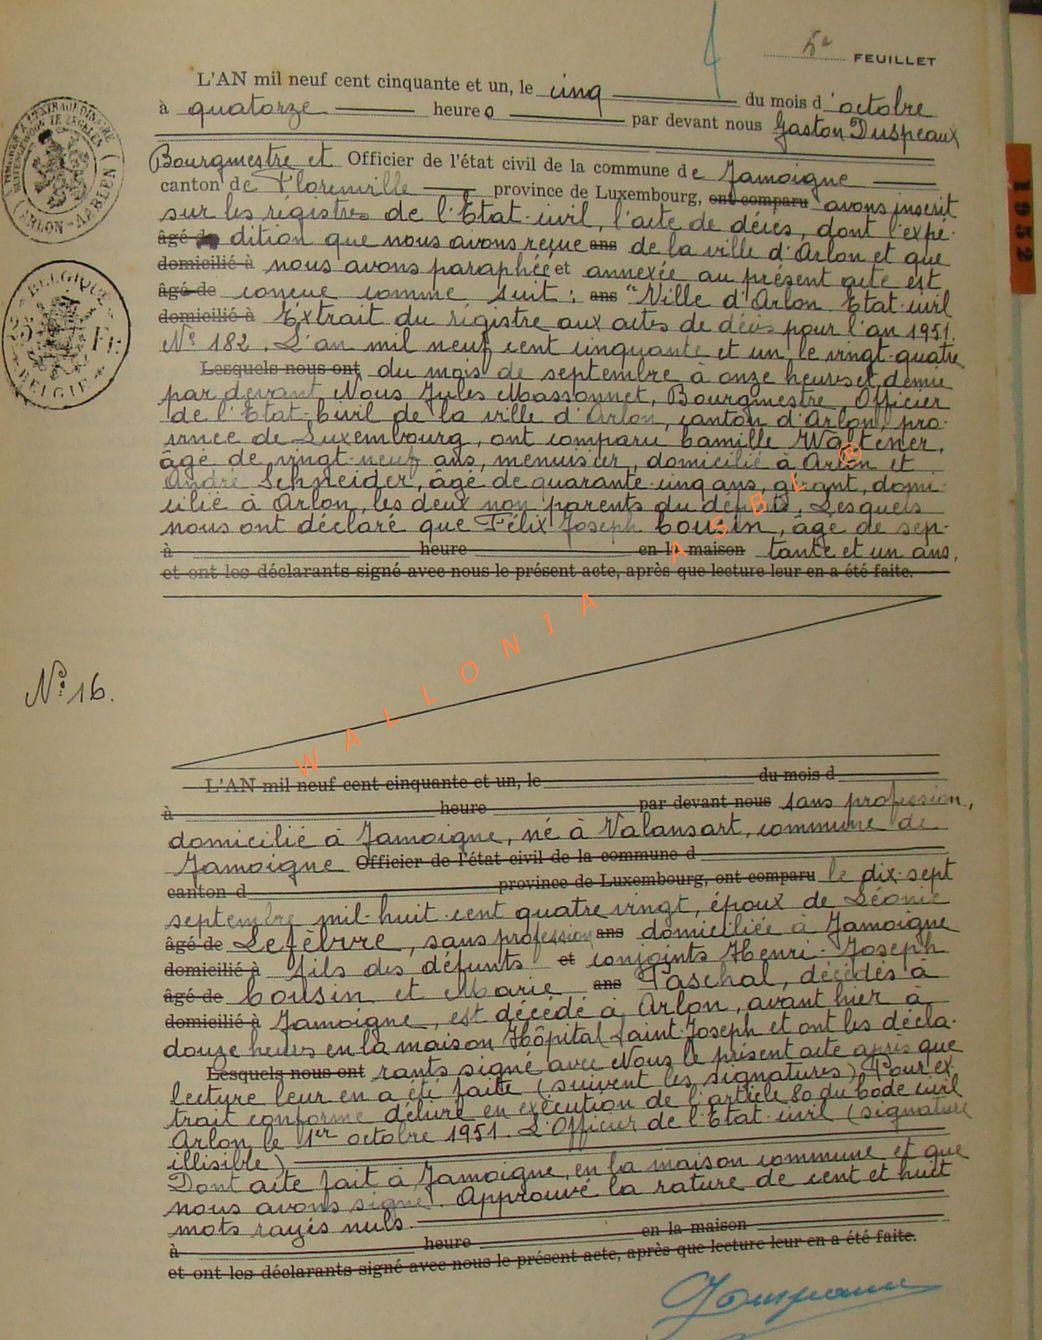 5e FEUILLET
L'AN mil neuf cent cinquante et un, le cinq du mois d'octobre
à quatorze heures par devant nous Gaston Duspeaux
Bourgmestre et Officier de l'état civil de la commune de Jamoigne
canton de Florenville province de Luxembourg, ont comparu avons inscrit
sur les régistres de l'Etat-civil, l'acte de décès, dont l'expé-
âgé de dition que nous avons reçue ans de la ville d'Arlon et que
domicilié à nous avons paraphée et annexée au présent acte est
âgé de conçue comme suit : ans "Ville d'Arlon Etat-civil
domicilié à Extrait du régistre aux actes de décès pour l'an 1951.
N° 182. L'an mil neuf cent cinquante et un, le vingt-quatre
Lesquels nous ont du mois de septembre à onze heures et demie
par devant Nous Jules Massonnet, Bourgmestre, Officier
de l'Etat-Civil de la ville d'Arlon, canton d'Arlon, pro-
vince de Luxembourg, ont comparu Camille Waltener,
âgé de vingt-neuf ans, menuisier, domicilié à Arlon et
André Schneider, âgé de quarante-cinq ans, gérant, domi-
cilié à Arlon, les deux non parents du défunt, Lesquels
nous ont déclaré que Félix Joseph Cousin, âgé de sep-
à heure en la maison tante et un ans,
et ont les déclarants signé avec nous le présent acte, après que lecture leur en a été faite.
WALLONIA ASBL ®
N° 16.
L'AN mil neuf cent cinquante et un, le du mois d
à heure par devant nous sans profession,
domicilié à Jamoigne, né à Valansart, commune de
Jamoigne Officier de l'état civil de la commune d
canton d province de Luxembourg, ont comparu le dix-sept
septembre mil-huit-cent quatre vingt, époux de Léonie
âgé de Lefèbvre, sans profession ans domiciliée à Jamoigne
domicilié à fils des défunts et conjoints Henri-Joseph
âgé de Cousin et Marie ans Paschal, décédés à
domicilié à Jamoigne, est décédé à Arlon, avant hier à
douze heures en la maison Hôpital Saint-Joseph et ont les décla-
Lesquels nous ont rants signé avec Nous le présent acte après que
lecture leur en a été faite (suivent les signatures) Pour ex-
trait conforme délivré en exécution de l'article 80 du Code civil
Arlon le 1er octobre 1951. L'Officier de l'Etat-civil (signature
illisible)
Dont acte fait à Jamoigne, en la maison commune et que
nous avons signé. Approuvé la rature de cent et huit
mots rayés nuls.
à heure en la maison
et ont les déclarants signé avec nous le présent acte, après que lecture leur en a été faite.
1952
BELGIQUE
BELGIE